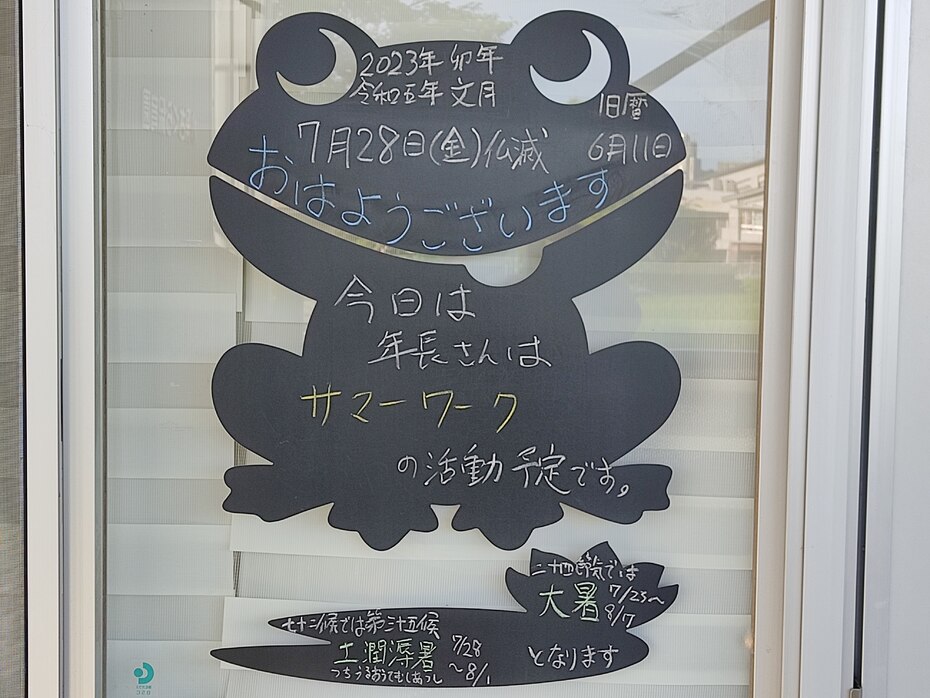 2023年 卯年
令和五年 文月
旧暦
7月28日(金)仏滅
6月11日
おはようございます
今日は
年長さんは
サマーワーク
の活動予定です。
二十四節気では
大暑 7/23~
8/7
となります
七十二候では第三十五候
土潤溽暑 7/28
つちうるおうてむしあつし ~8/1